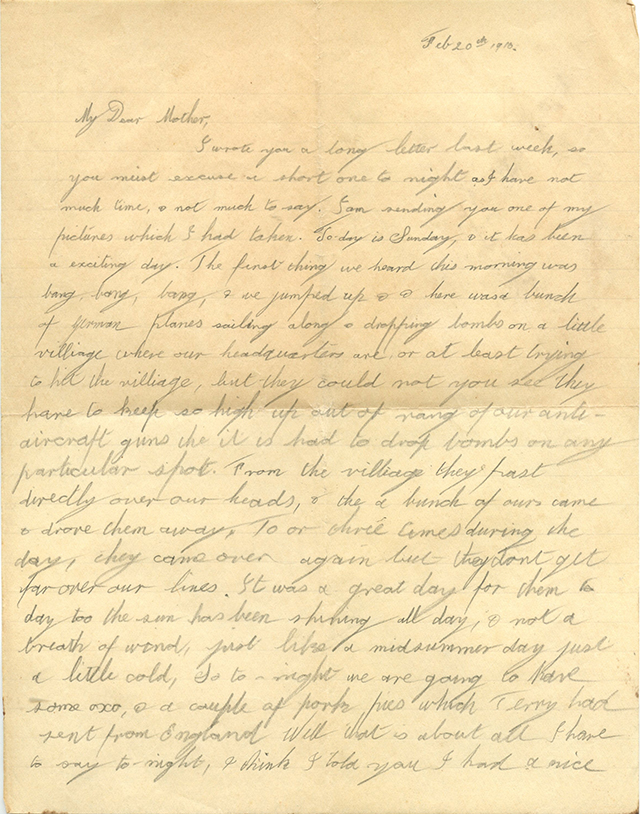 Feb 20th 1916.
My Dear Mother,
I wrote you a long letter last week, so
you must excuse a short one to night as I have not
much time, & not much to say. I am sending you one of my
pictures which I had taken. To-day is Sunday, & it has been
a exciting day. The first thing we heard this morning was
bang, bang, bang, & we jumped up & & here was a bunch
of german planes sailing along & dropping bombs on a little
villiage where our headquarters are, or at least trying
to hit the villiage, but they could not you see they
have to keep so high up out of rang of our anti-
aircraft guns the it is had to drop bombs on any
particular spot. From the villiage they past
directly over our heads, & the a bunch of ours came
& drove them away, To or three times during the
day, they came over again but they dont get
far over our lines. It was a great day for them to
day too the sun has been shining all day, & not a
breath of wond, just like a midsummer day just
a little cold, So to-night we are going to have
some oxo, & a couple of pork pies which Terry had
sent from England Will that is about all I have
to say to-night, I think I told you I had a nice